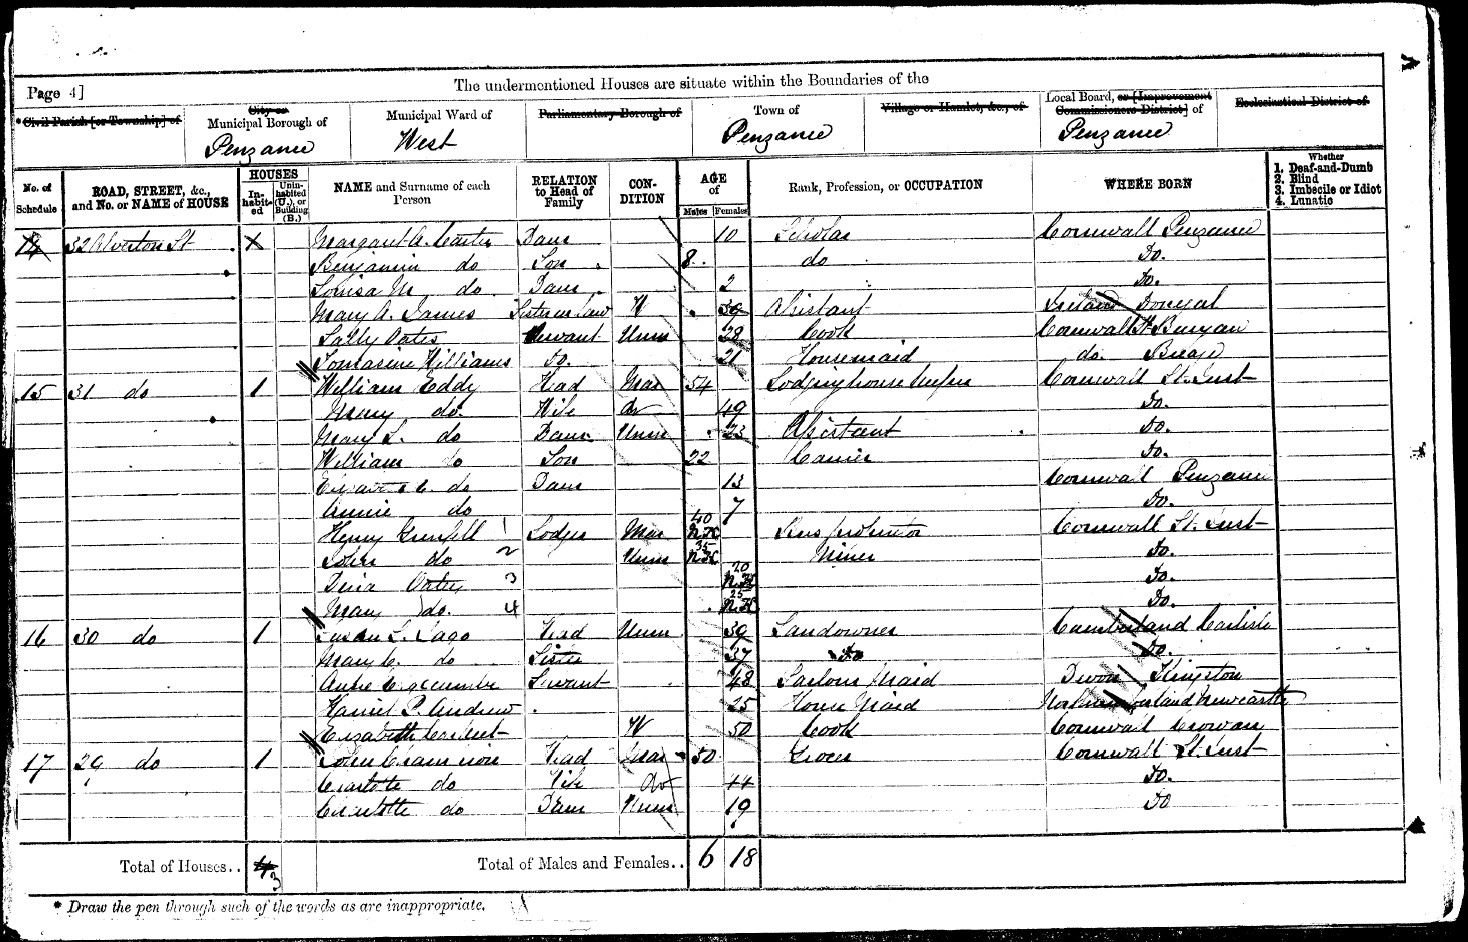 The undermentioned Houses are situate within the Boundaries of the
Page 4]
* Civil Parish [or Township] of
City or Municipal Borough of
Penzance
Municipal Ward of
West
Parliamentary Borough of
Town of
Penzance
Village or Hamlet, &c., of
Local Board, or [Improvement Commissioners District] of
Penzance
Ecclesiastical District of
No. of Schedule
ROAD, STREET, &c., and No. or NAME of HOUSE
HOUSES
In-habit-ed
Unin-habited (U.), or Building (B.)
NAME and Surname of each Person
RELATION to Head of Family
CON-DITION
AGE of
Males
Females
Rank, Profession, or OCCUPATION
WHERE BORN
Whether
1. Deaf-and-Dumb
2. Blind
3. Imbecile or Idiot
4. Lunatic
14 32 Alverton St Margaret A. Carter Daur 10 Scholar Cornwall Penzance
Benjamin do Son 8 do Do.
Louisa M do Daur 2 Do.
Mary A. James Sister in law W 39 Assistant Ireland Donegal
Sally Oates Servant Unm 28 Cook Cornwall St Buryan
Tomasine Williams Do. 21 Housemaid do Breage
15 31 do 1 William Eddy Head Mar 54 Lodging house Keeper Cornwall St. Just
Mary do. Wife do 49 Do.
Mary L. do Daur Unm 23 Assistant Do.
William do Son 22 Carrier Do.
do Daur 13 Cornwall Penzance
Annie do 7 Do.
Henry Grenfell 1 Lodger Mar 40 N.K. Cornwall St. Just
John do 2 Unm 35 N.K. Miner Do.
3 20 N.K. Do.
Mary do. 4 25 N.K. Do.
16 30 do 1 Susan L. Head Unm 39 Landowner Cumberland Carlisle
Mary C. do Sister 37 Do Do.
Servant 48 Parlour Maid Devon Kingston
Harriet P. Andrew 25 House Maid Northumberland Newcastle
Elizabeth W 50 Cook Cornwall Crowan
17 29 do 1 John Head Mar 50 Grocer Cornwall St. Just
Charlotte do Wife do 44 Do.
Charlotte do Daur Unm 19 Do
Total of Houses.. 4 3
Total of Males and Females.. 6 18
* Draw the pen through such of the words as are inappropriate.